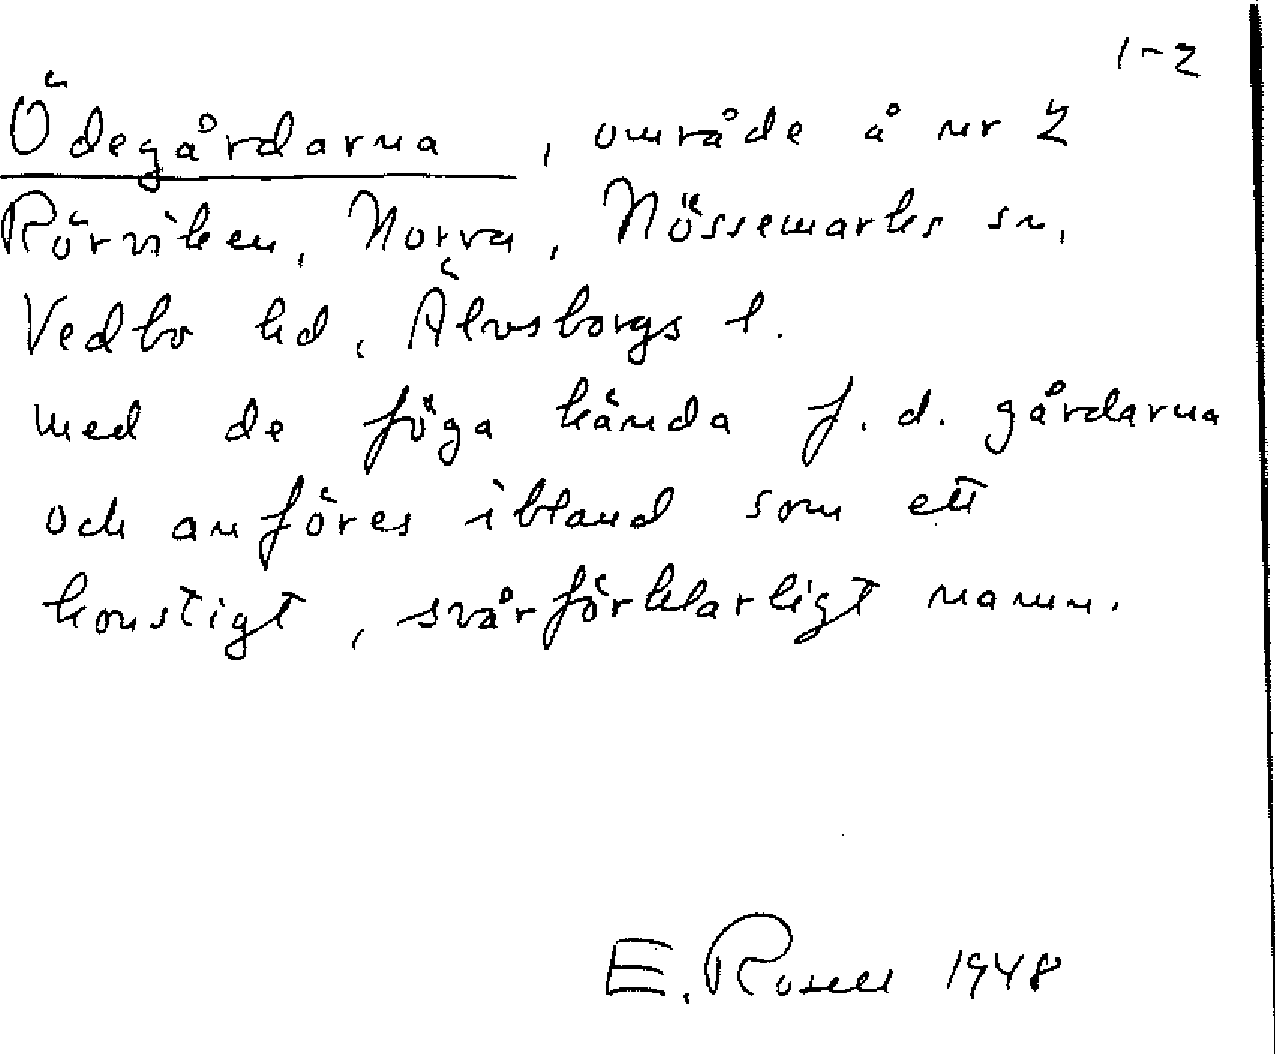 1-2
Ödegårdarna, område å nr 2
Rörviken, Norra, Nössemarks sn,
Vedbo hd, Älvsborgs l.
med de föga kända f. d. gårdarna
och anföres ibland som ett
konstigt, svårförklarligt namn.
E. Rosell 1948